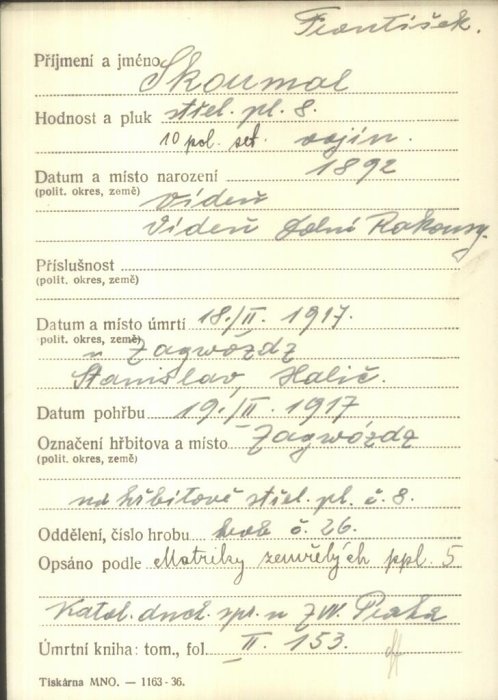 František.
Příjmení a jméno Skoumal
Hodnost a pluk střel. pl. 8.
10 pol. set. vojín.
Datum a místo narození 1892
(polit. okres, země) Vídeň
Vídeň Dolní Rakousy.
Příslušnost
(polit. okres, země)
Datum a místo úmrtí 18./II. 1917.
(polit. okres, země) u Zagwózdz
Stanislav, Halič.
Datum pohřbu 19./II. 1917
Označení hřbitova a místo Zagwózdz
(polit. okres, země)
na hřbitově střel. pl. č. 8.
Oddělení, číslo hrobu hrob č. 26.
Opsáno podle Matriky zemřelých ppl. 5
Katol. duch. spr. u ZVV. Praha
Úmrtní kniha: tom., fol. II. 153.
Tiskárna MNO. — 1163-36.